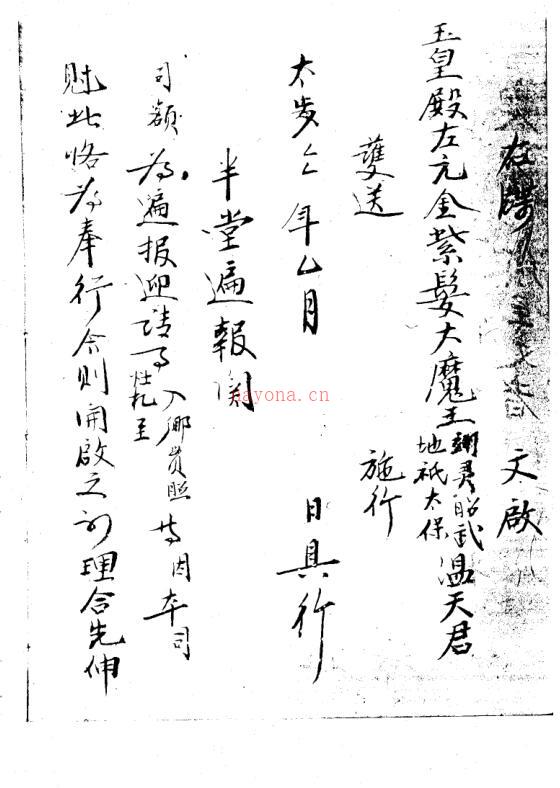 文啟
玉皇殿左元金紫髮大魔王翊灵昭武地祇太保温天君
護送 施行
太岁厶年厶月 日具行
半堂遍報関
司額 為遍报迎請事入鄉貫照 等因夲司
此恪為奉行合則開啟之初理合先伸
nayona.cn